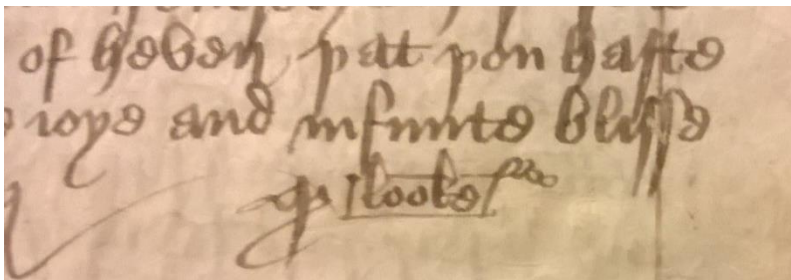 of heven þat þou haste
ioye and infinite blisse